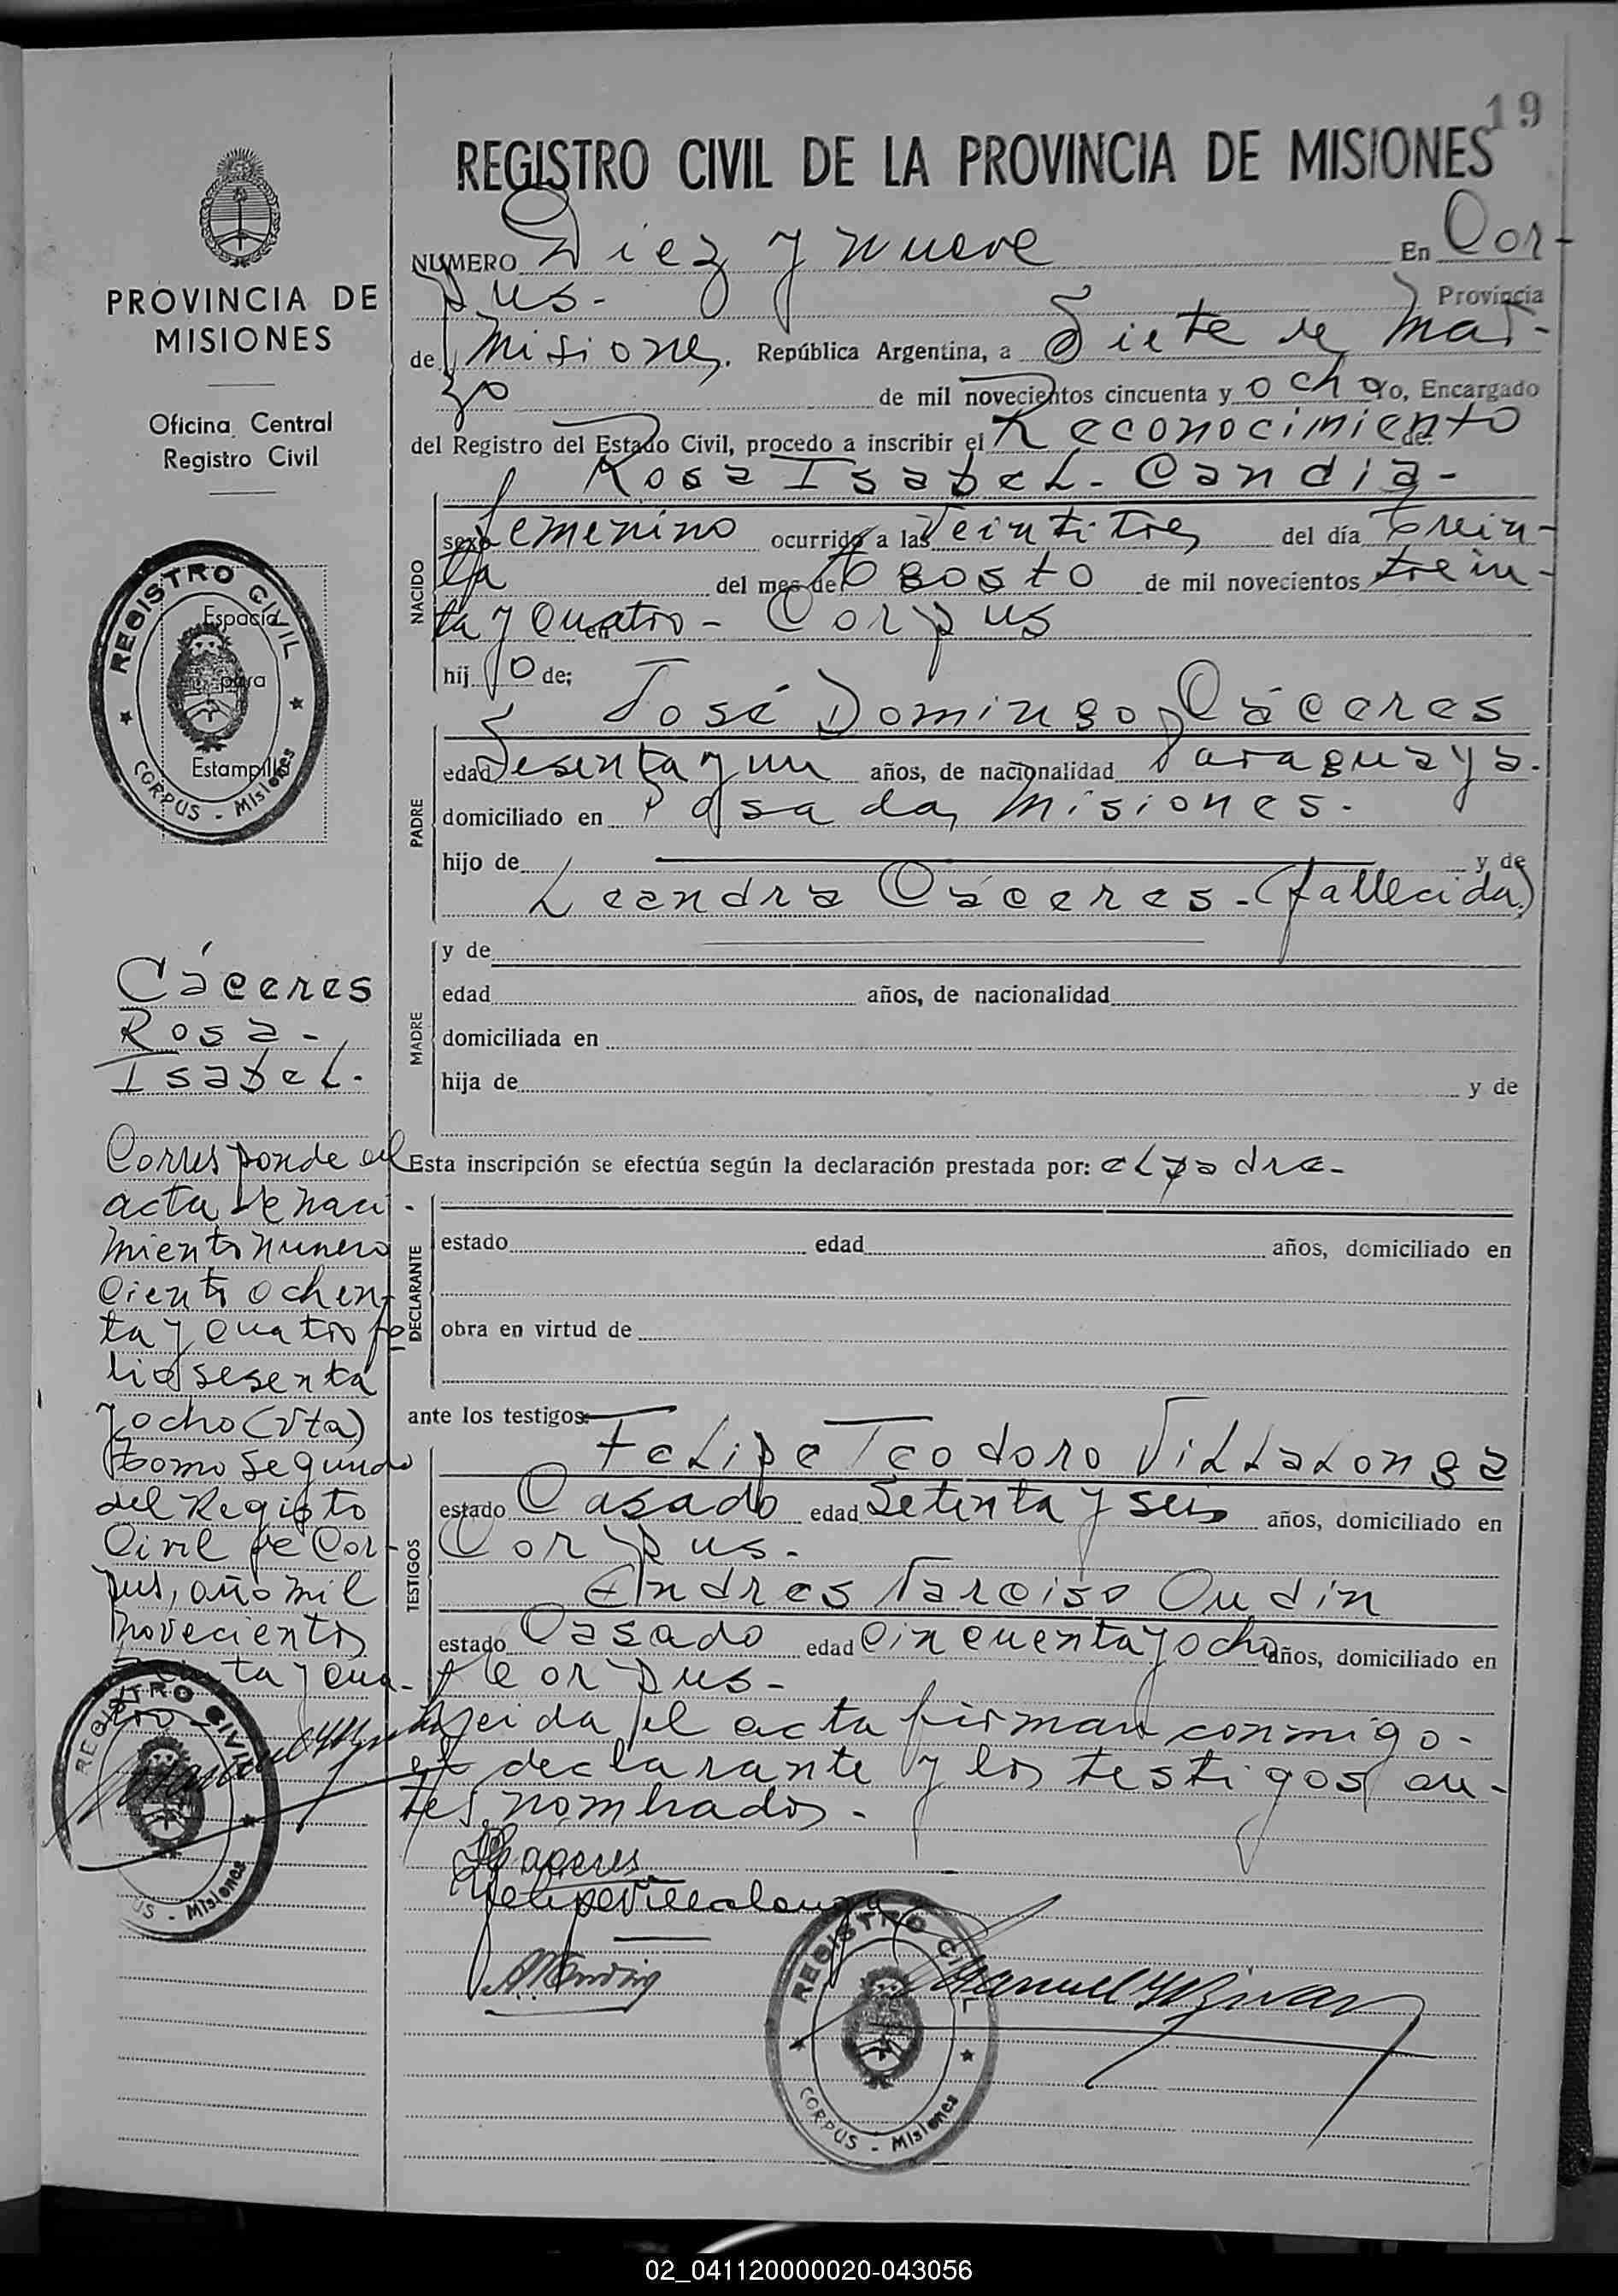 19
REGISTRO CIVIL DE LA PROVINCIA DE MISIONES
NUMERO Diez y nueve En Cor-
pus- Provincia
de Misiones, República Argentina, a Siete de Mar-
zo de mil novecientos cincuenta y ocho yo, Encargado
del Registro del Estado Civil, procedo a inscribir el Reconocimiento de:
Rosa Isabel - Candia -
NACIDO
sexo femenino ocurrido a las Veintitres del día trein-
ta del mes de Agosto de mil novecientos trein-
ta y cuatro - en Corpus
hij o de;
José Domingo Cáceres
PADRE
edad Sesenta y un años, de nacionalidad Paraguaya.
domiciliado en Posadas, Misiones.
hijo de y de
Leandra Cáceres - (fallecida)
MADRE
y de
edad años, de nacionalidad
domiciliada en
hija de y de
Esta inscripción se efectúa según la declaración prestada por: el padre -
DECLARANTE
estado edad años, domiciliado en
obra en virtud de
ante los testigos:
Felipe Teodoro Villalonga
TESTIGOS
estado Casado edad Setenta y seis años, domiciliado en
Corpus.
Andres Narciso Oudin
estado Casado edad Cincuenta y ocho años, domiciliado en
Corpus -
Leida el acta firman conmigo -
el declarante y los testigos an-
tes nombrados.
Caceres
Felipe Villalonga
PROVINCIA DE
MISIONES
Oficina Central
Registro Civil
REGISTRO CIVIL
Espacio
para
Estampilla
CORPUS - Misiones
Cáceres
Rosa -
Isabel.
Corresponde al
acta de naci-
miento numero
ciento ochen-
ta y cuatro fo-
lio sesenta
y ocho (vta)
tomo segundo
del Registo
Civil de Cor-
pus, año mil
novecientos
treinta y cua-
tro -
REGISTRO CIVIL
CORPUS - Misiones
REGISTRO CIVIL
CORPUS - Misiones
02_041120000020-043056